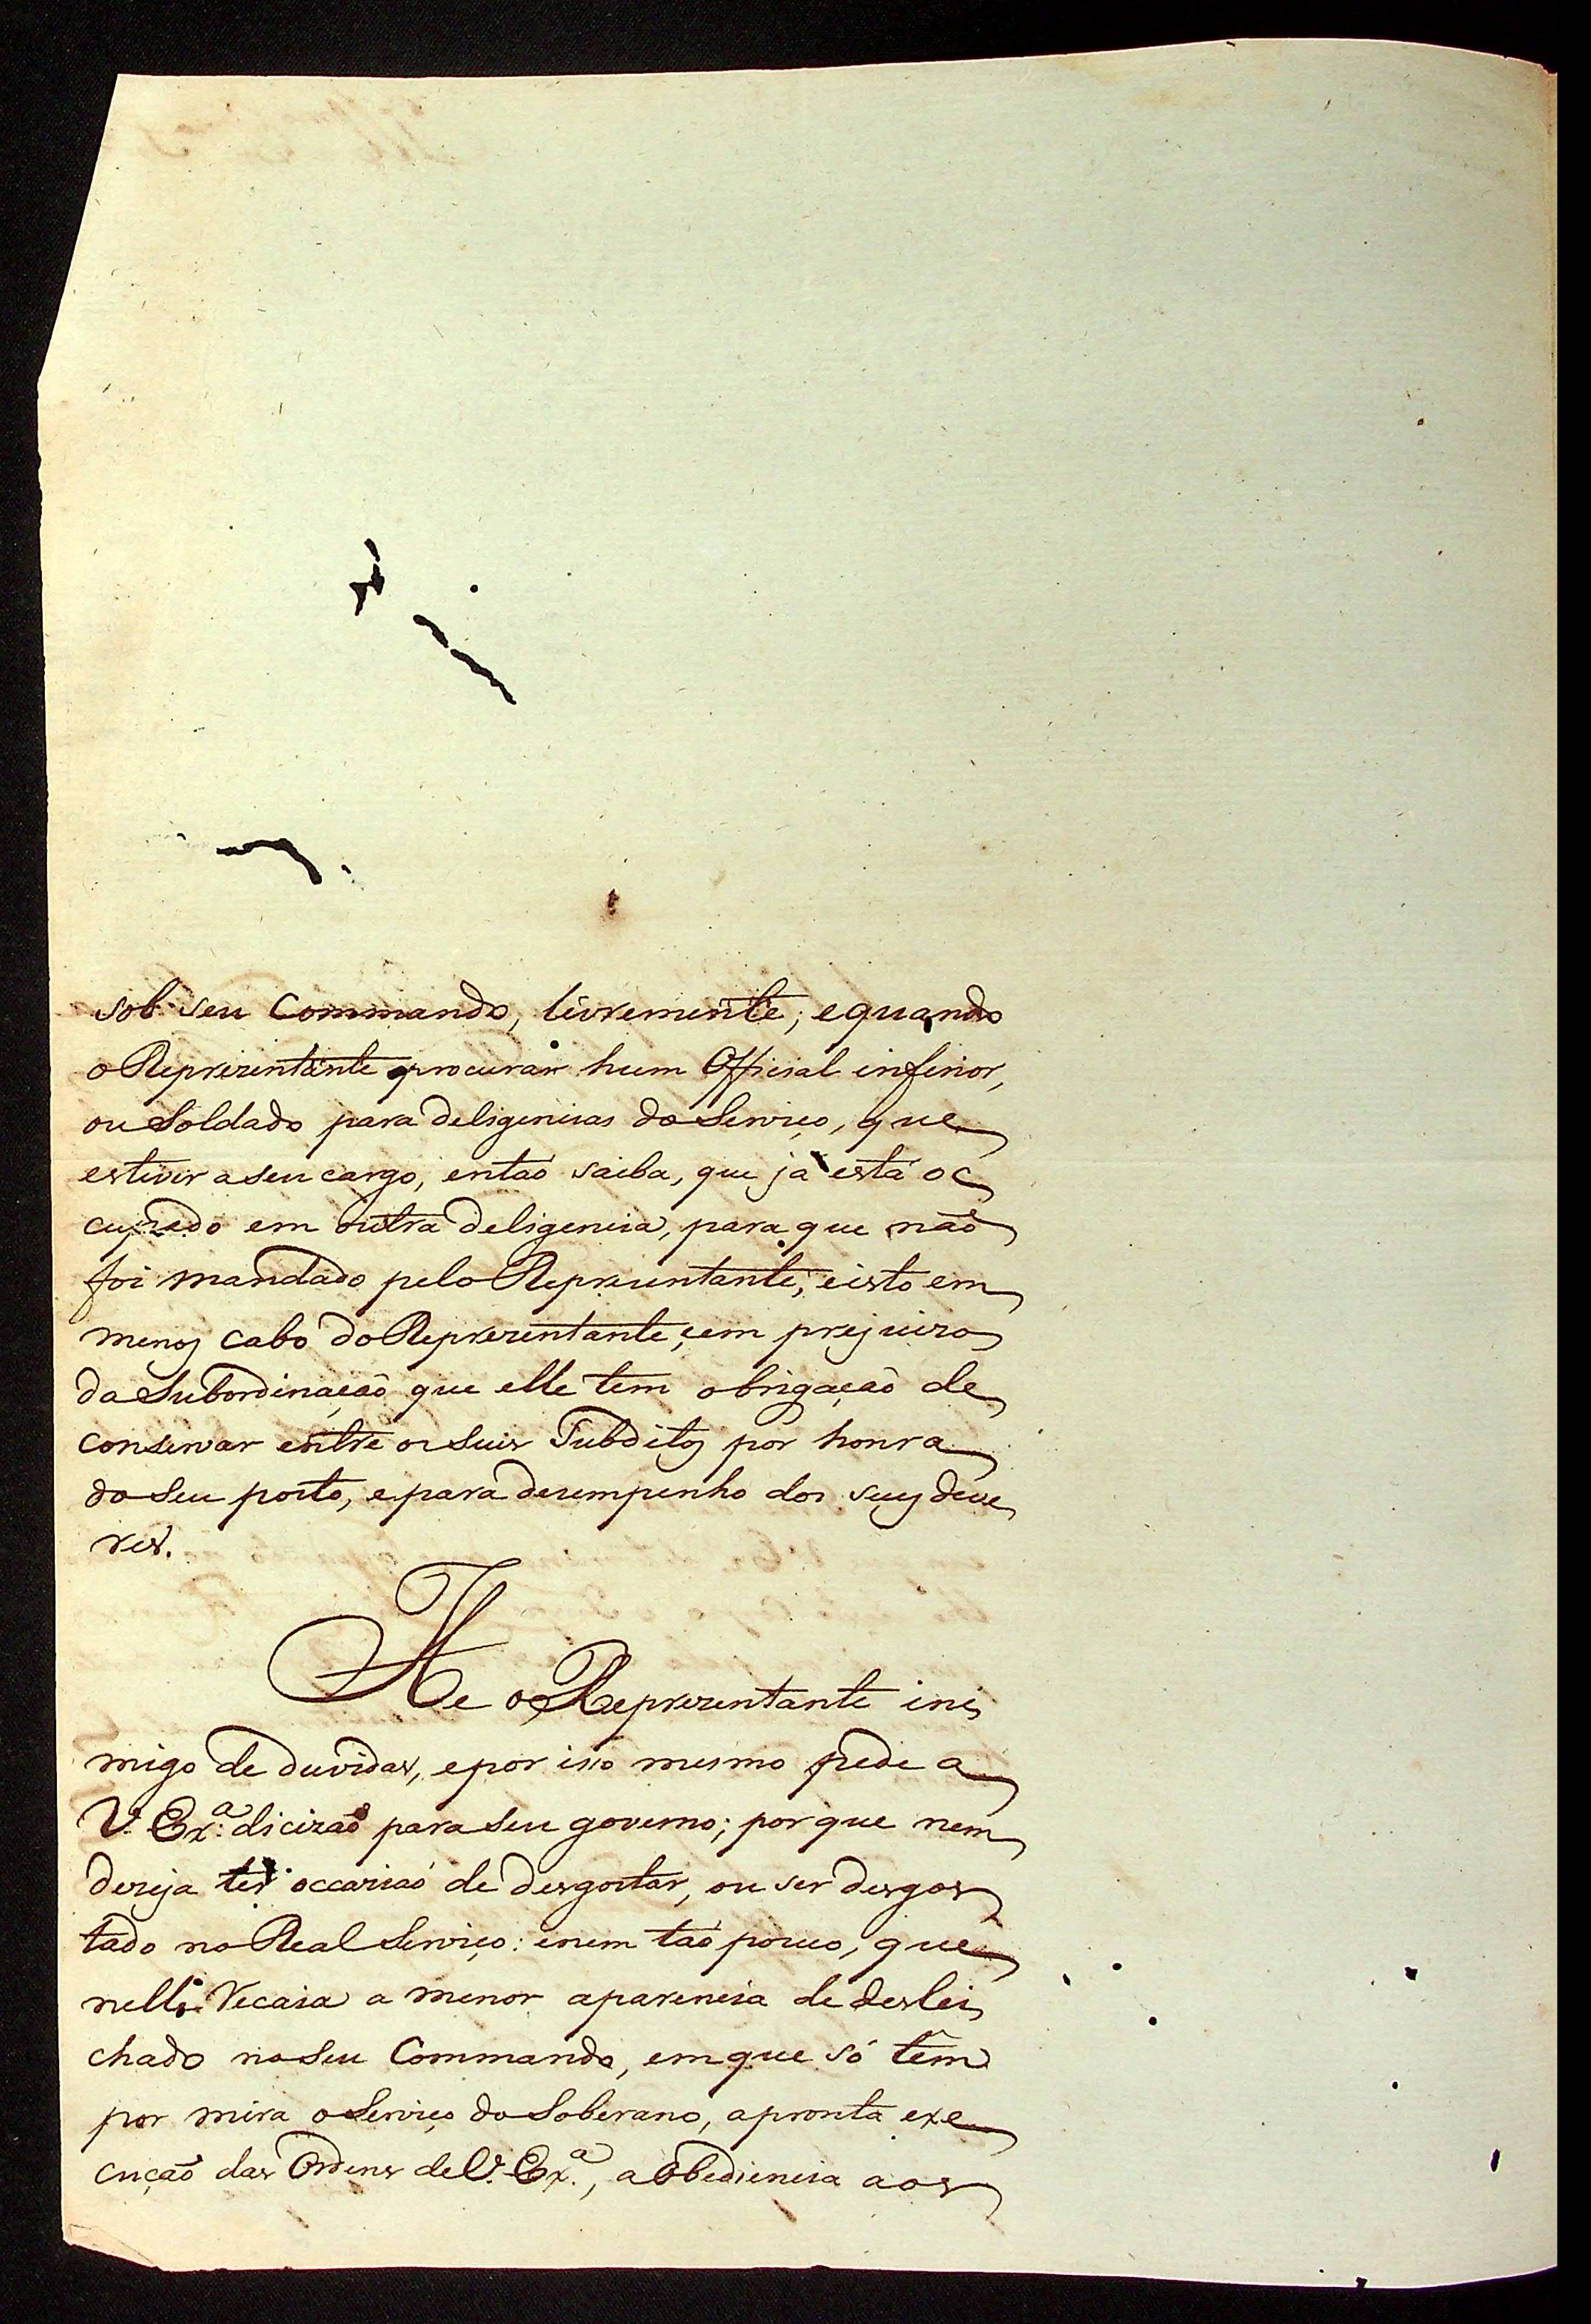 sob seu Commando, livremente; equando
o Reprezentante procurar hum Official inferior,
ou Soldado para deligencias do Serviço, que
estiver a seu cargo, entaõ saiba, que já está oc
cupado em outra deligencia, para que naõ
foi mandado pelo Reprezentante; eisto em
menos cabo do Reprezentante, eem prejuizo
da Subordinaçaõ que elle tem obrigaçaõ de
conservar entre os Seus Subditos por honra
do Seu posto, epara dezempenho dos seus deve
res.
He o Reprezentante ini
migo de duvidas, epor isso mesmo pede a
V. Ex.ª dicizaõ para seu governo; por que nem
dezeja ter occaziaõ de desgostar, ou ser desgos
tado no Real Serviço: enem taõ pouco, que
nelle recaia a menor aparencia de deslei
chado no Seu Commando, em que só têm
por mira o Serviço do Soberano, apronta exe
cuçaõ das Ordens de V. Ex.ª, a Obediencia aos